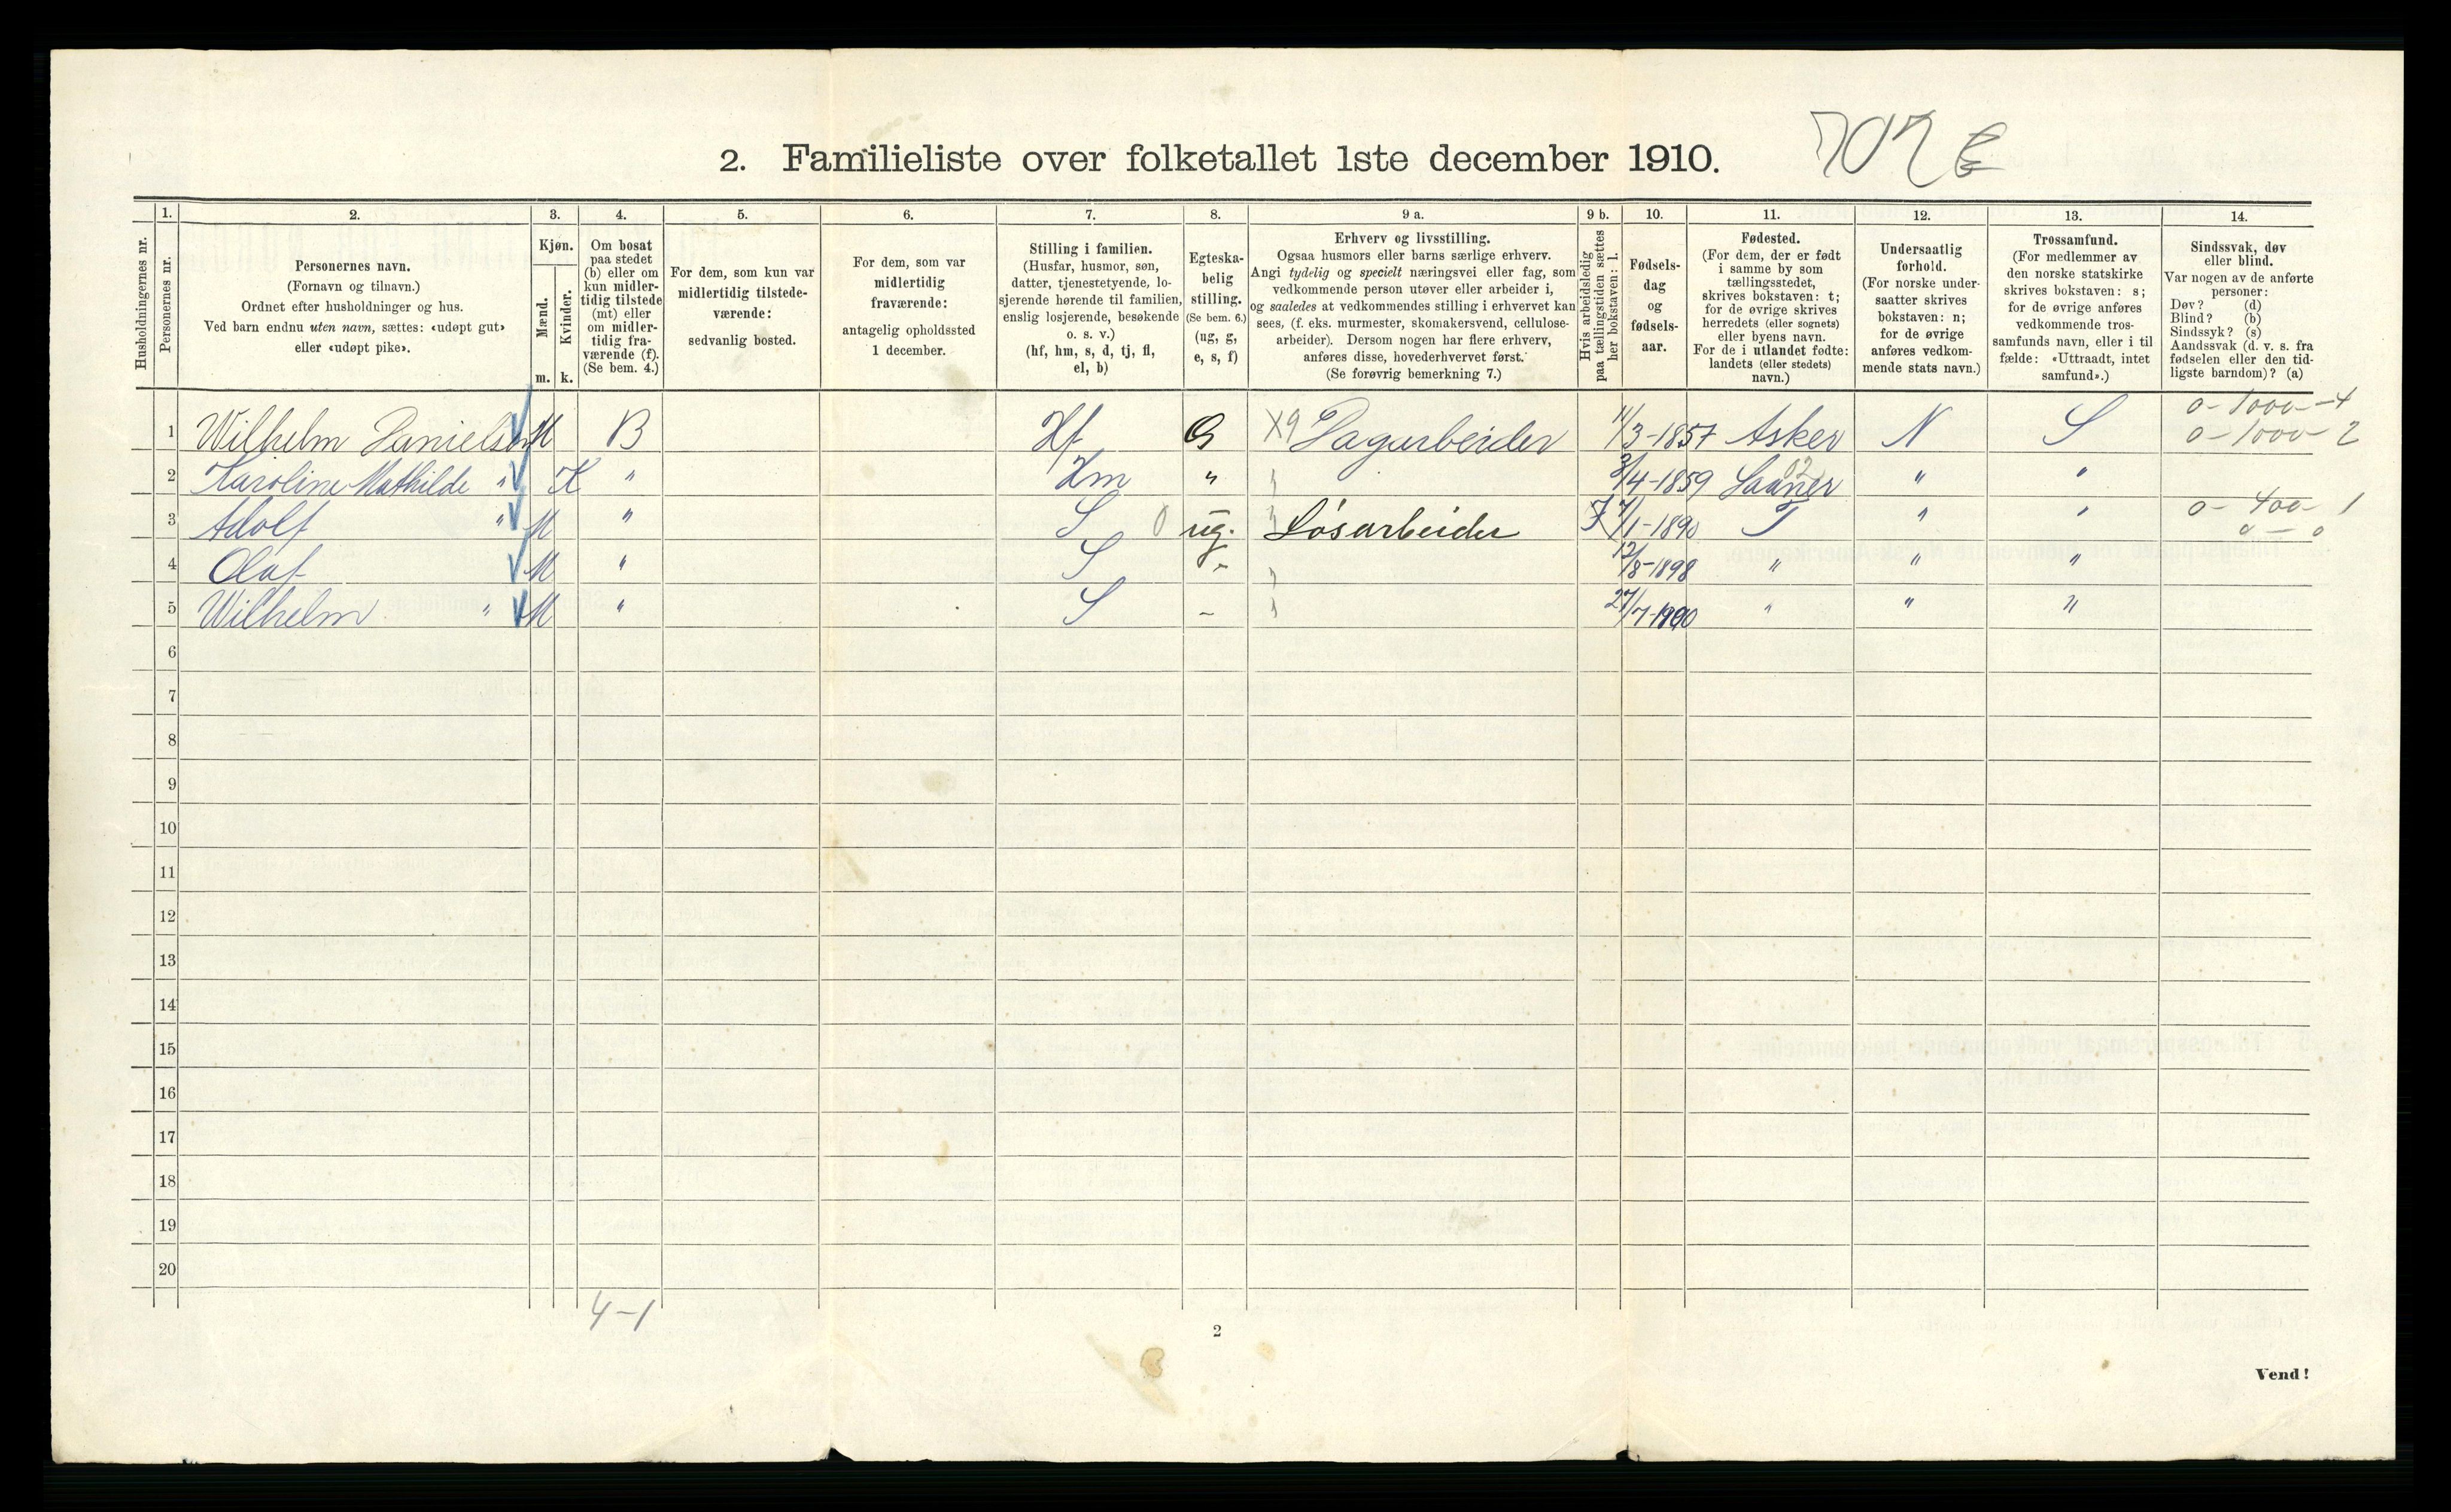 707 E
2. Familieliste over folketallet 1ste december 1910.
Husholdningernes nr.
1. Personernes nr.
2. Personernes navn.
(Fornavn og tilnavn.)
Ordnet efter husholdninger og hus.
Ved barn endnu uten navn, sættes: «udøpt gut»
eller «udøpt pike».
3. Kjøn.
Mænd. m.
Kvinder. k.
4. Om bosat
paa stedet
(b) eller om
kun midler-
tidig tilstede
(mt) eller
om midler-
tidig fra-
værende (f).
(Se bem. 4.)
5. For dem, som kun var
midlertidig tilstede-
værende:
sedvanlig bosted.
6. For dem, som var
midlertidig
fraværende:
antagelig opholdssted
1 december.
7. Stilling i familien.
(Husfar, husmor, søn,
datter, tjenestetyende, lo-
sjerende hørende til familien,
enslig losjerende, besøkende
o. s. v.)
(hf, hm, s, d, tj, fl,
el, b)
8. Egteska-
belig
stilling.
(Se bem. 6.)
(ug, g,
e, s, f)
9 a. Erhverv og livsstilling.
Ogsaa husmors eller barns særlige erhverv.
Angi tydelig og specielt næringsvei eller fag, som
vedkommende person utøver eller arbeider i,
og saaledes at vedkommendes stilling i erhvervet kan
sees, (f. eks. murmester, skomakersvend, cellulose-
arbeider). Dersom nogen har flere erhverv,
anføres disse, hovederhvervet først.
(Se forøvrig bemerkning 7.)
9 b. Hvis arbeidsledig
paa tællingstiden sættes
her bokstaven: l.
10. Fødsels-
dag
og
fødsels-
aar.
11. Fødested.
(For dem, der er født
i samme by som
tællingsstedet,
skrives bokstaven: t;
for de øvrige skrives
herredets (eller sognets)
eller byens navn.
For de i utlandet fødte:
landets (eller stedets)
navn.)
12. Undersaatlig
forhold.
(For norske under-
saatter skrives
bokstaven: n;
for de øvrige
anføres vedkom-
mende stats navn.)
13. Trossamfund.
(For medlemmer av
den norske statskirke
skrives bokstaven: s;
for de øvrige anføres
vedkommende tros-
samfunds navn, eller i til
fælde: «Uttraadt, intet
samfund».)
14. Sindssvak, døv
eller blind.
Var nogen av de anførte
personer:
Døv? (d)
Blind? (b)
Sindssyk? (s)
Aandssvak (d. v. s. fra
fødselen eller den tid-
ligste barndom)? (a)
1 Wilhelm Danielsen M B Hf G X9 Dagarbeider 11/3-1857 Asker N S 0-1000-4
0-1000-2
2 Karoline Mathilde " K " Hm " 3/4-1859 02 " "
3 Adolf " M " S 0 ug. Løsarbeider 7/1-1890 T " " 0-400-1
0-0
4 Olaf M " S " 12/8-1898 " " "
5 Wilhelm " M " S - 27/7-1900 " " "
6
7
8
9
10
11
12
13
14
15
16
17
18
19
20
4-1
2
Vend!